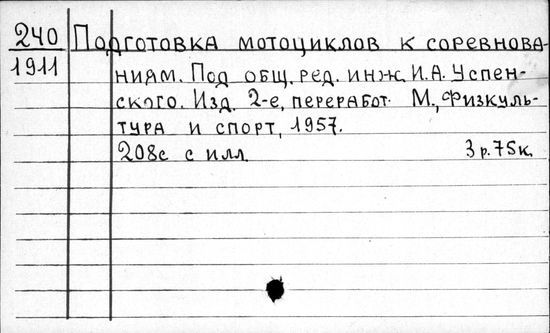 240 Подготовка мотоциклов к соревнова-
1911 ниям. Под общ. ред. инж. И.А. Успен-
ского. Изд. 2-е, переработ. М., Физкуль-
тура и спорт, 1957.
208с с илл. 3 р. 75 к.